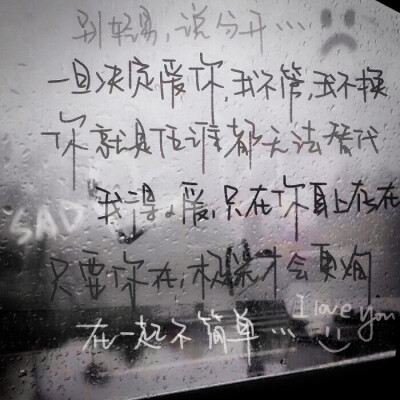 别轻易,说分开…
一旦决定爱你,我不管,我不换
你就是任谁都无法替代
"SAD" 我得爱,只在你身上存在
只要你在,极端才会更绚
I love you
在一起不简单…